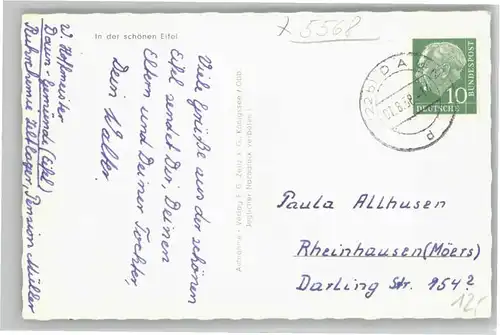 In der schönen Eifel
x 5568
W. Hoffmeister
Daun-Gemünden (Eifel)
Ruhrchemie Zeltlager, Pension Müller
Viele Grüße aus der schönen
Eifel sendet Dir, Deinen
Eltern und Deiner Tochter,
Dein Walter.
Aufnahme u. Verlag E. G. Zerg v. G. Königssee / Obb.
Jeglicher Nachdruck verboten
(22b) DAUN
01.8.58
d
10
DEUTSCHE
BUNDESPOST
Paula Allhusen
Rheinhausen (Moers)
Darling Str. 954?
12,-